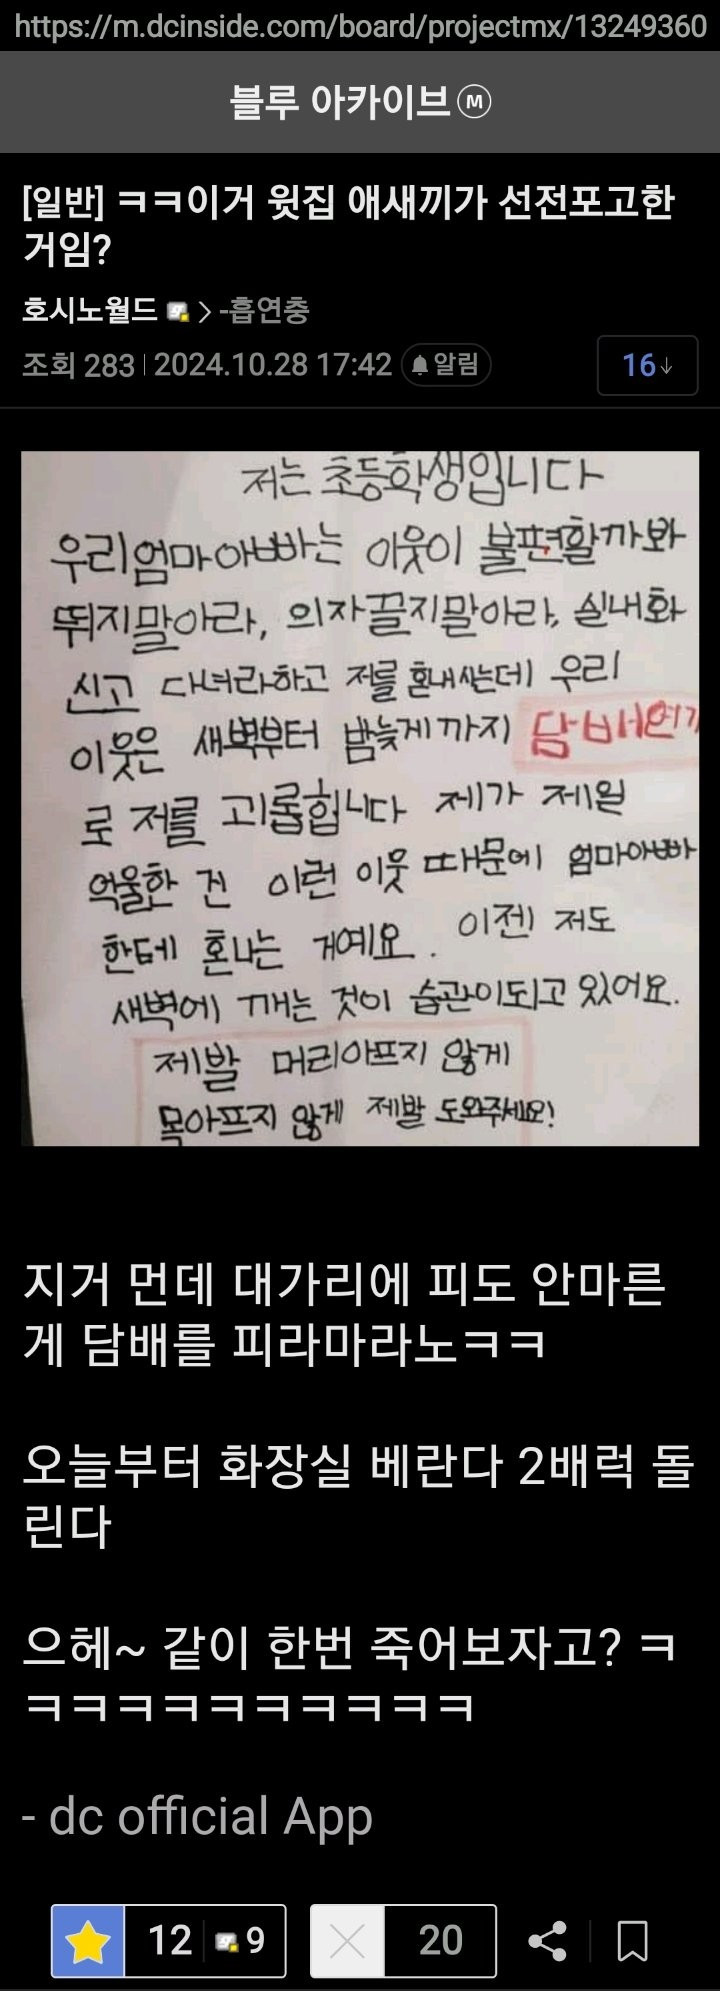 https://m.dcinside.com/board/projectmx/13249360
블루 아카이브Ⓜ
[일반] ㅋㅋ이거 윗집 애새끼가 선전포고한
거임?
호시노월드 > -흡연충
조회 283 | 2024.10.28 17:42 알림
16↓
저는 초등학생입니다
우리엄마아빠는 이웃이 불편할까봐
뛰지말아라, 의자끌지말아라, 실내화
신고 다녀라하고 저를 혼내시는데 우리
이웃은 새벽부터 밤늦게까지 담배연기
로 저를 괴롭힙니다 제가 제일
억울한 건 이런 이웃 때문에 엄마아빠
한테 혼나는 거예요. 이젠 저도
새벽에 깨는 것이 습관이되고 있어요.
제발 머리아프지 않게
목아프지 않게 제발 도와주세요!
지거 먼데 대가리에 피도 안마른
게 담배를 피라마라노ㅋㅋ
오늘부터 화장실 베란다 2배럭 돌
린다
으헤~ 같이 한번 죽어보자고? ㅋ
ㅋㅋㅋㅋㅋㅋㅋㅋㅋㅋ
- dc official App
12 9 20